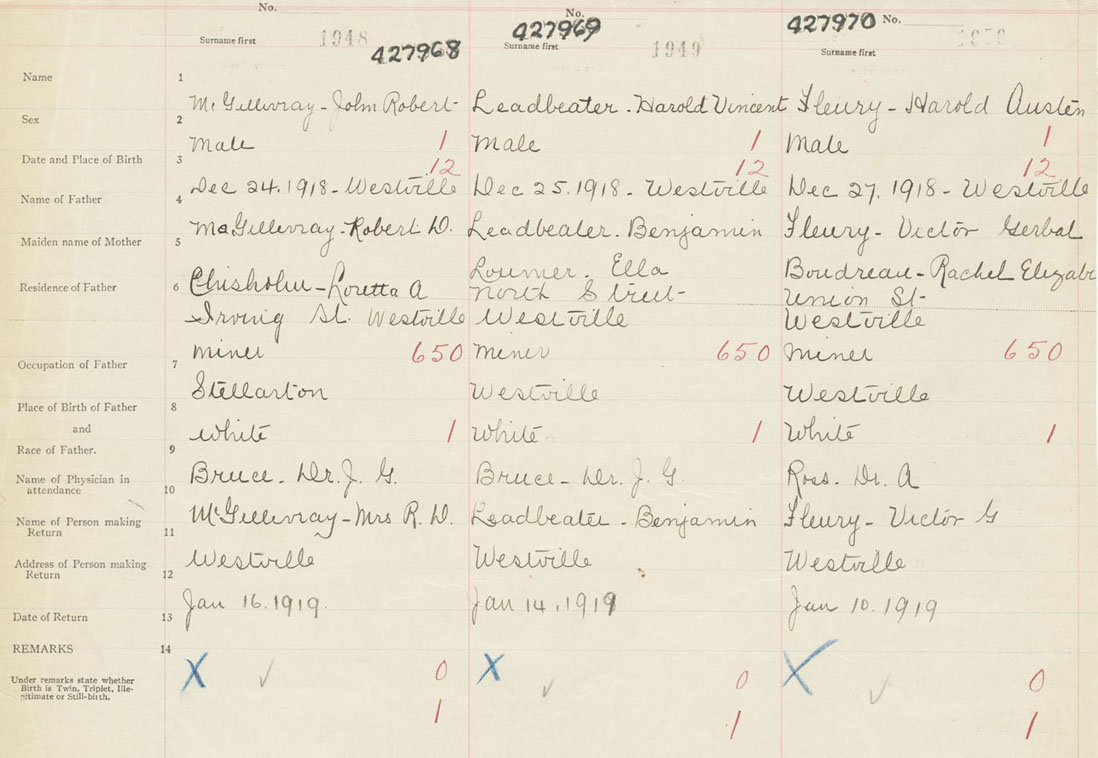 No. No. No.
427968 427969 427970
1948 1949 1950
Surname first Surname first Surname first
Name 1
McGillivray - John Robert Leadbeater - Harold Vincent Fleury - Harold Austen
Sex 2
Male 1 Male 1 Male 1
Date and Place of Birth 3
12 12 12
Dec 24. 1918 - Westville Dec 25. 1918 - Westville Dec 27. 1918 - Westville
Name of Father 4
MaGillivray - Robert D. Leadbeater. Benjamin Fleury - Victor Gerbal
Maiden name of Mother 5
Chisholm - Loretta A Loumer. Ella Boudreau - Rachel Elizabe
Residence of Father 6
North Street - Union St -
Irving St. Westville Westville Westville
miner 650 miner 650 miner 650
Occupation of Father 7
Stellarton Westville Westville
Place of Birth of Father 8
and
White 1 White 1 White 1
Race of Father. 9
Bruce - Dr. J. G. Bruce - Dr. J. G. Ross. Dr. A
Name of Physician in
attendance 10
McGillivray - Mrs R. D. Leadbeater - Benjamin Fleury - Victor G
Name of Person making
Return 11
Westville Westville Westville
Address of Person making
Return 12
Jan 16. 1919. Jan 14, 1919 Jan 10. 1919
Date of Return 13
REMARKS 14
X X X
0 0 0
Under remarks state whether
Birth is Twin, Triplet, Ille-
gitimate or Still-birth.
1 1 1